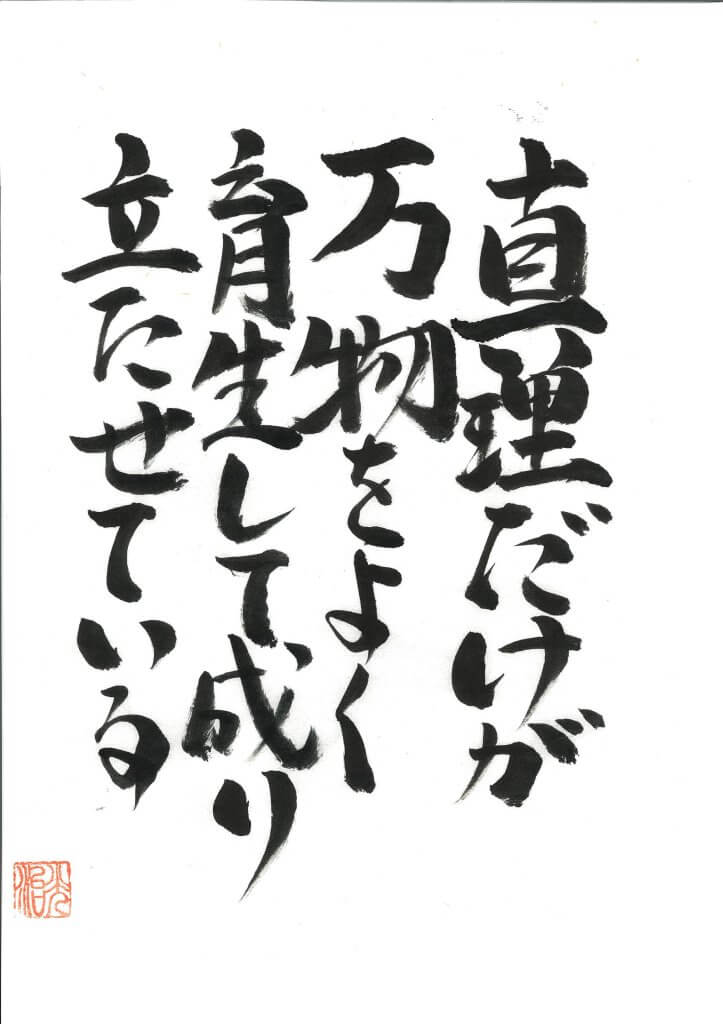 真理だけが
万物をよく
育生して成り
立たせている